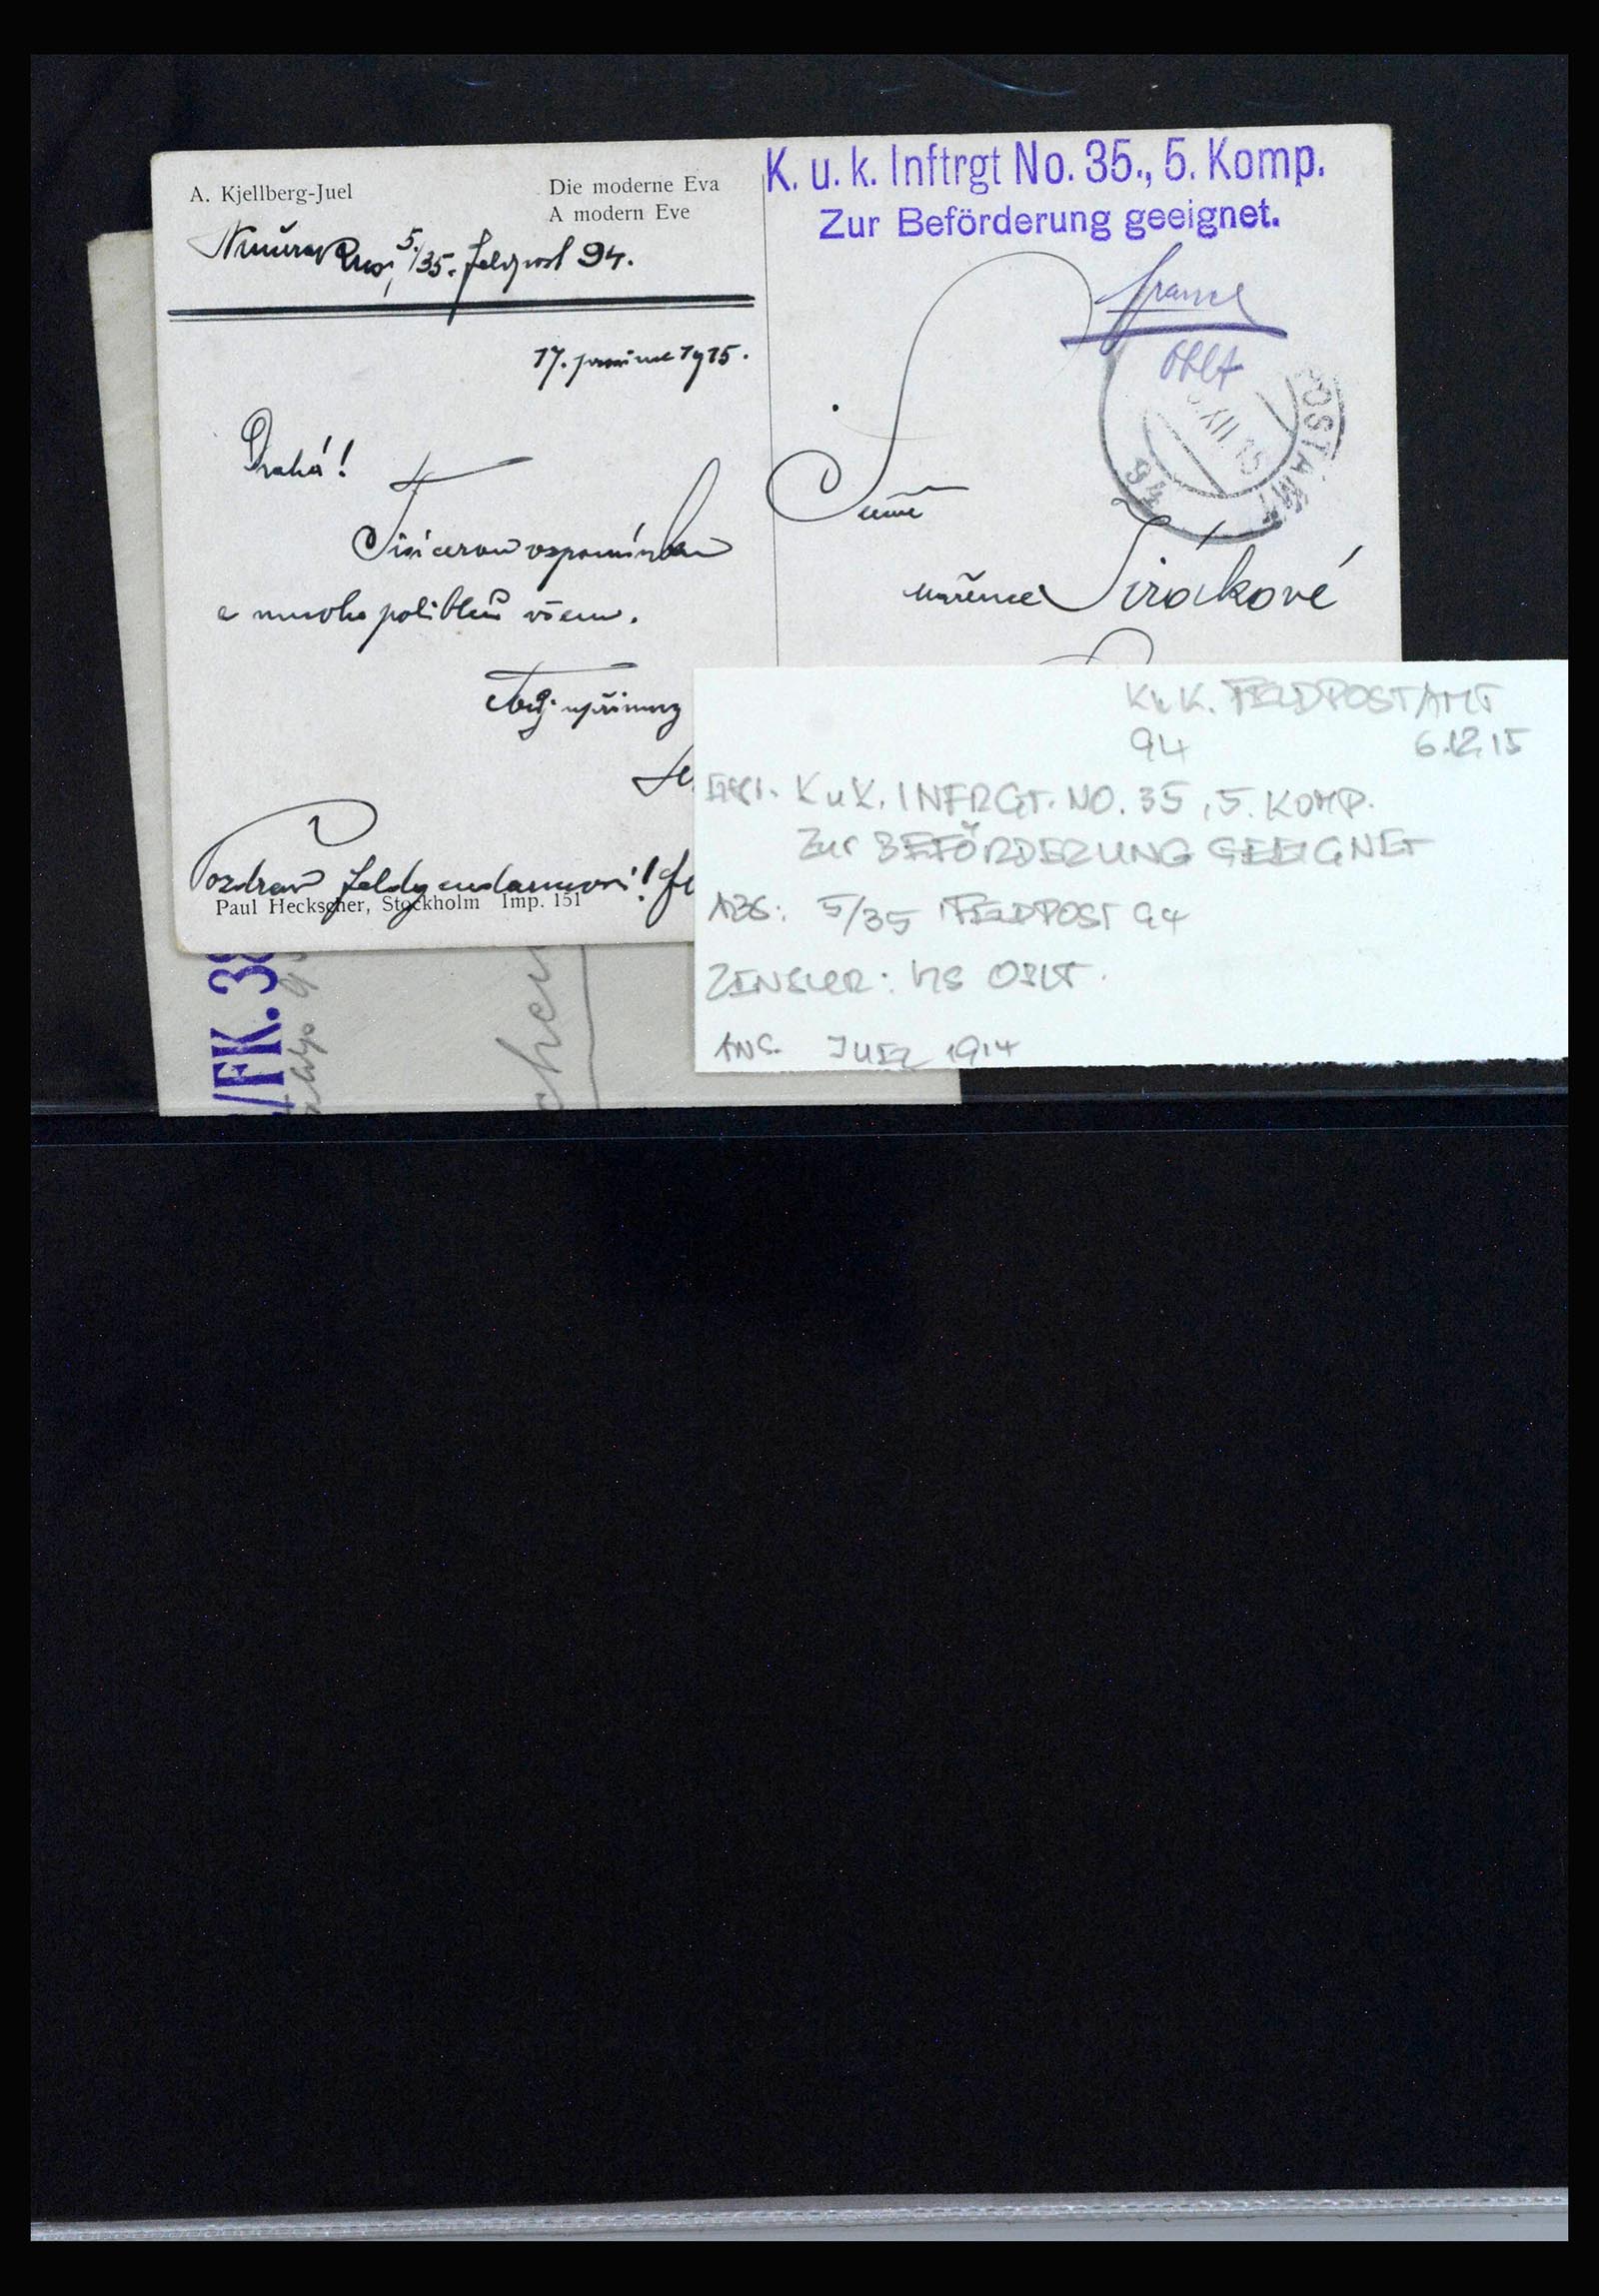 A. Kjellberg-Juel
Die moderne Eva
A modern Eve
5./35. Feldpost 94.
17. 1915.
Drahá!
Tisíceron vzpomínkou
a mnoho políbků všem.
Tvůj upřímný
Pozdrav Feldgendarmovi!
Paul Heckscher, Stockholm Imp. 151
K. u. k. Inftrgt No. 35., 5. Komp.
Zur Beförderung geeignet.
Oblt
XII 15
POSTAMT
94
Mařence Sirákové
K.u.K. FELDPOSTAMT
94 6.12.15
K.u.K. INFRGT. NO. 35, 5. KOMP.
Zur BEFÖRDERUNG GEEIGNET
ABS: 5/35 FELDPOST 94
ZENSUR: HS OBLT.
ANS. JUEL 1914
/FK. 38